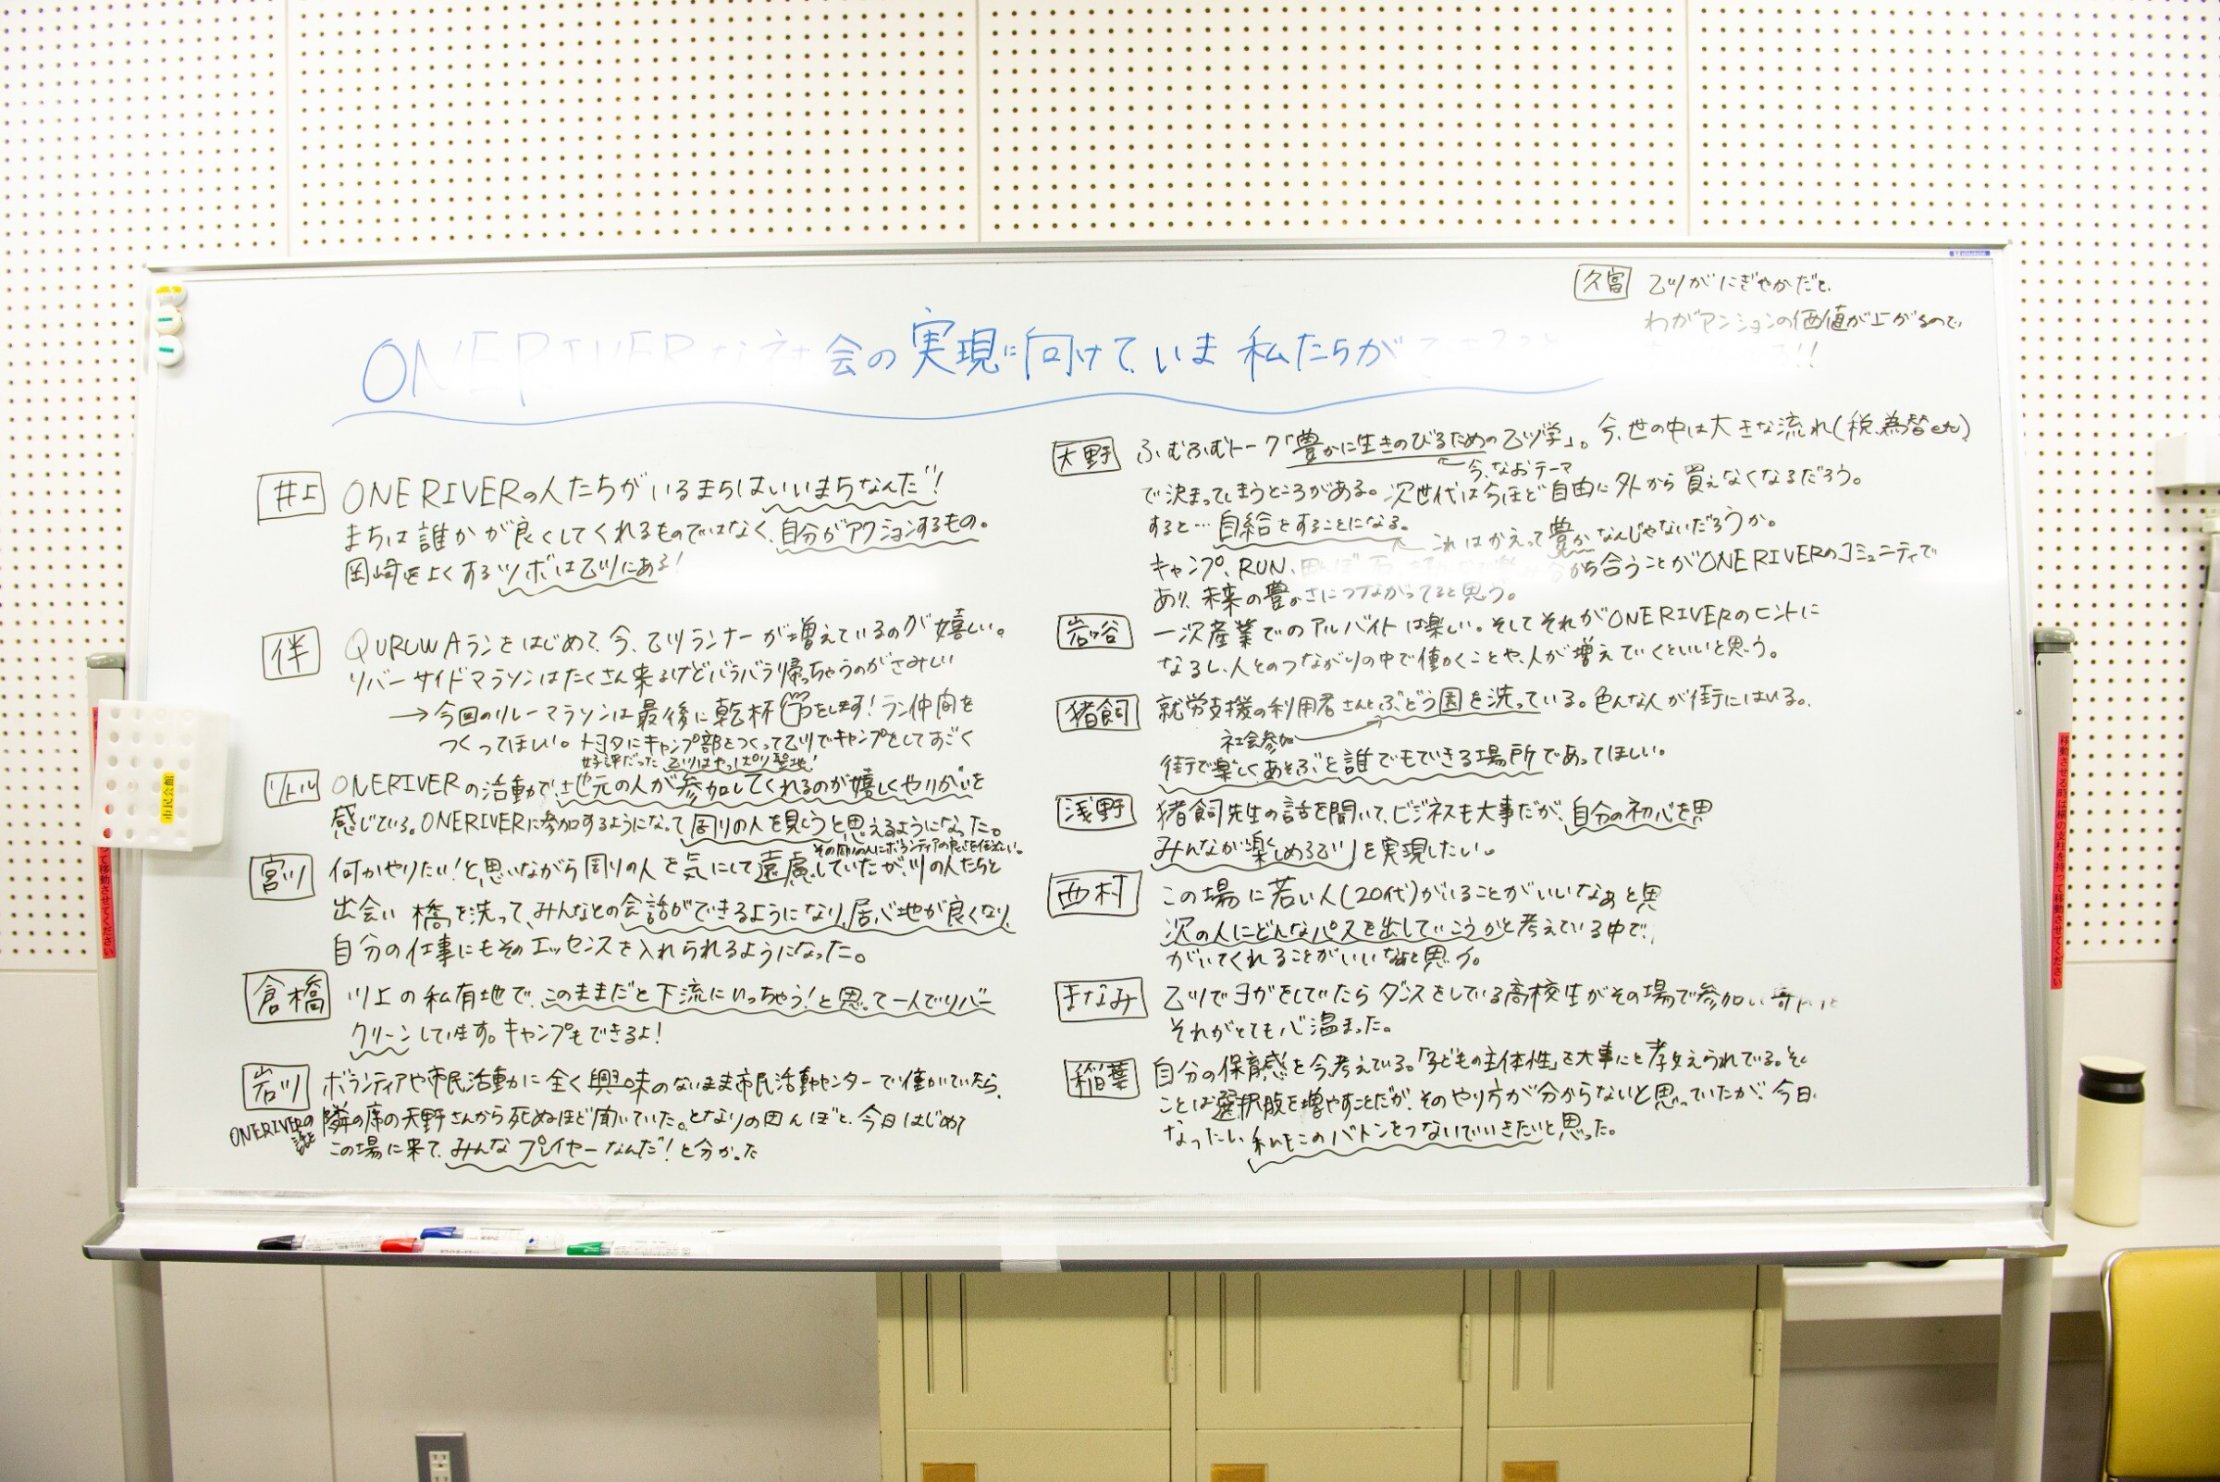 ONERIVERな社会の実現に向けて、いま私たちが
久冨 乙川がにぎやかだと、
わがマンションの価値が上がるので
!!
井上 ONERIVERの人たちがいるまちはいいまちなんだ!
まちは誰かが良くしてくれるものではなく、自分がアクションするもの。
岡崎をよくするツボは乙川にある!
伴 QURUWAランをはじめて、今、乙川ランナーが増えているのが嬉しい。
リバーサイドマラソンはたくさん来るけどバラバラ帰っちゃうのがさみしい
→今回のリレーマラソンは最後に乾杯をします!ラン仲間を
つくってほしい。トヨタにキャンプ部をつくって乙川でキャンプをしてすごく
好評だった 乙川はやっぱり聖地!
リトル ONERIVERの活動で、地元の人が参加してくれるのが嬉しくやりがいを
感じている。ONERIVERに参加するようになって周りの人を見ようと思えるようになった。
その周りの人にボランティアの良さを伝えたい。
宮川 何かやりたい!と思いながら周りの人を気にして遠慮していたが、川の人たちと
出会い 橋を洗って、みんなとの会話ができるようになり、居心地が良くなり、
自分の仕事にもそのエッセンスを入れられるようになった。
倉橋 川上の私有地で、このままだと下流にいっちゃう!と思って一人でリバー
クリーンしています。キャンプもできるよ!
岩川 ボランティアや市民活動に全く興味のないまま市民活動センターで働いていたら、
ONERIVERの話を 隣の席の天野さんから死ぬほど聞いていた。となりの田んぼと、今日はじめて
この場に来て、みんなプレイヤーなんだ!と分かった
天野 ふむふむトーク「豊かに生きのびるための乙川学」。今、世の中は大きな流れ(税、為替etc)
←今、なおテーマ
で決まってしまうところがある。次世代は今ほど自由に外から買えなくなるだろう。
すると…自給をすることになる。
← これはかえって豊かなんじゃないだろうか。
キャンプ、RUN、 合うことがONERIVERのコミュニティで
あり、未来の豊かさにつながってると思う。
岩谷 一次産業でのアルバイトは楽しい。そしてそれがONERIVERのヒントに
なるし、人とのつながりの中で働くことや、人が増えていくといいと思う。
猪飼 就労支援の利用者さんとぶどう園を洗っている。色んな人が街にはいる。
社会参加
街で楽しくあそぶを誰でもできる場所であってほしい。
浅野 猪飼先生の話を聞いて、ビジネスも大事だが、自分の初心を思
みんなが楽しめる乙川を実現したい。
西村 この場に若い人(20代)がいることがいいなぁと思
次の人にどんなパスを出していこうかと考えている中で、
がいてくれることがいいなぁと思う。
まなみ 乙川でヨガをしていたらダンスをしている高校生がその場で参加
それがとても心温まった。
稲葉 自分の保育感を今考えている。「子どもの主体性」を大事にと教えられている。そ
ことは選択肢を増やすことだが、そのやり方が分からないと思っていたが、今日、
なったたい 私もこのバトンをつないでいきたいと思った。
市民会館
移動させる時は横の支柱を持って移動させてください
って移動させてください